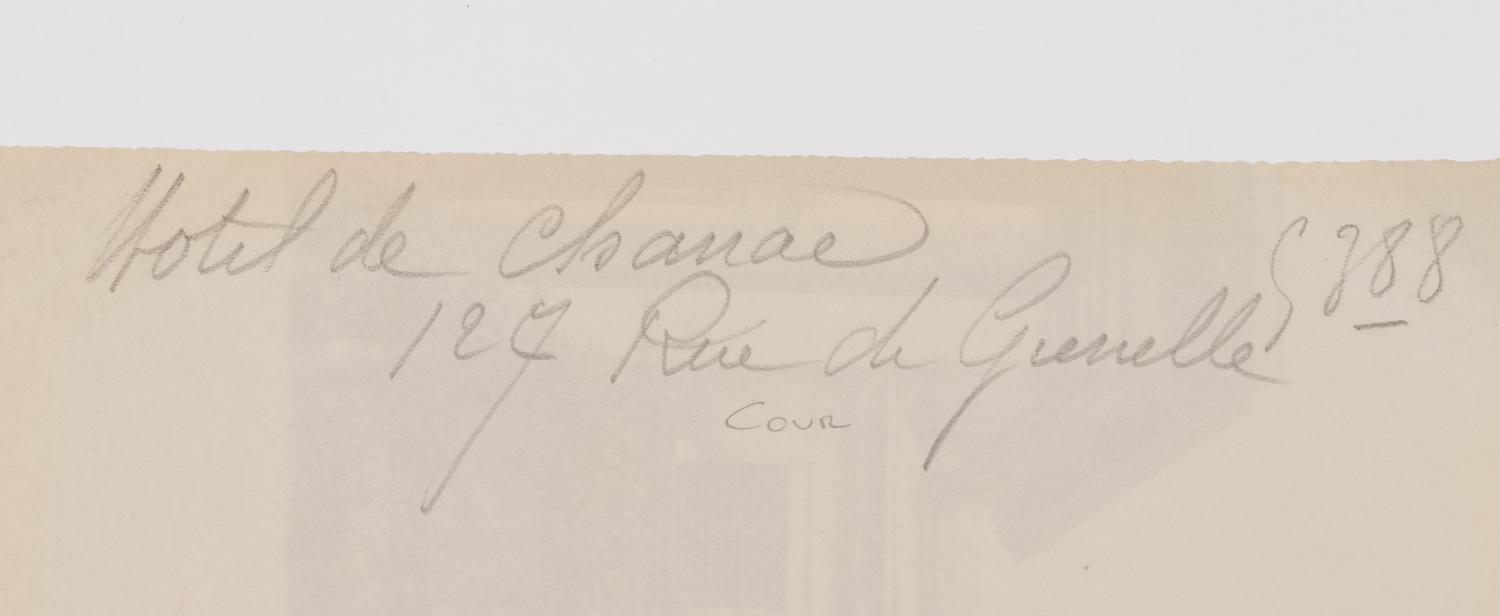 Hotel de Chanac
127 Rue de Grenelle
5388
Cour